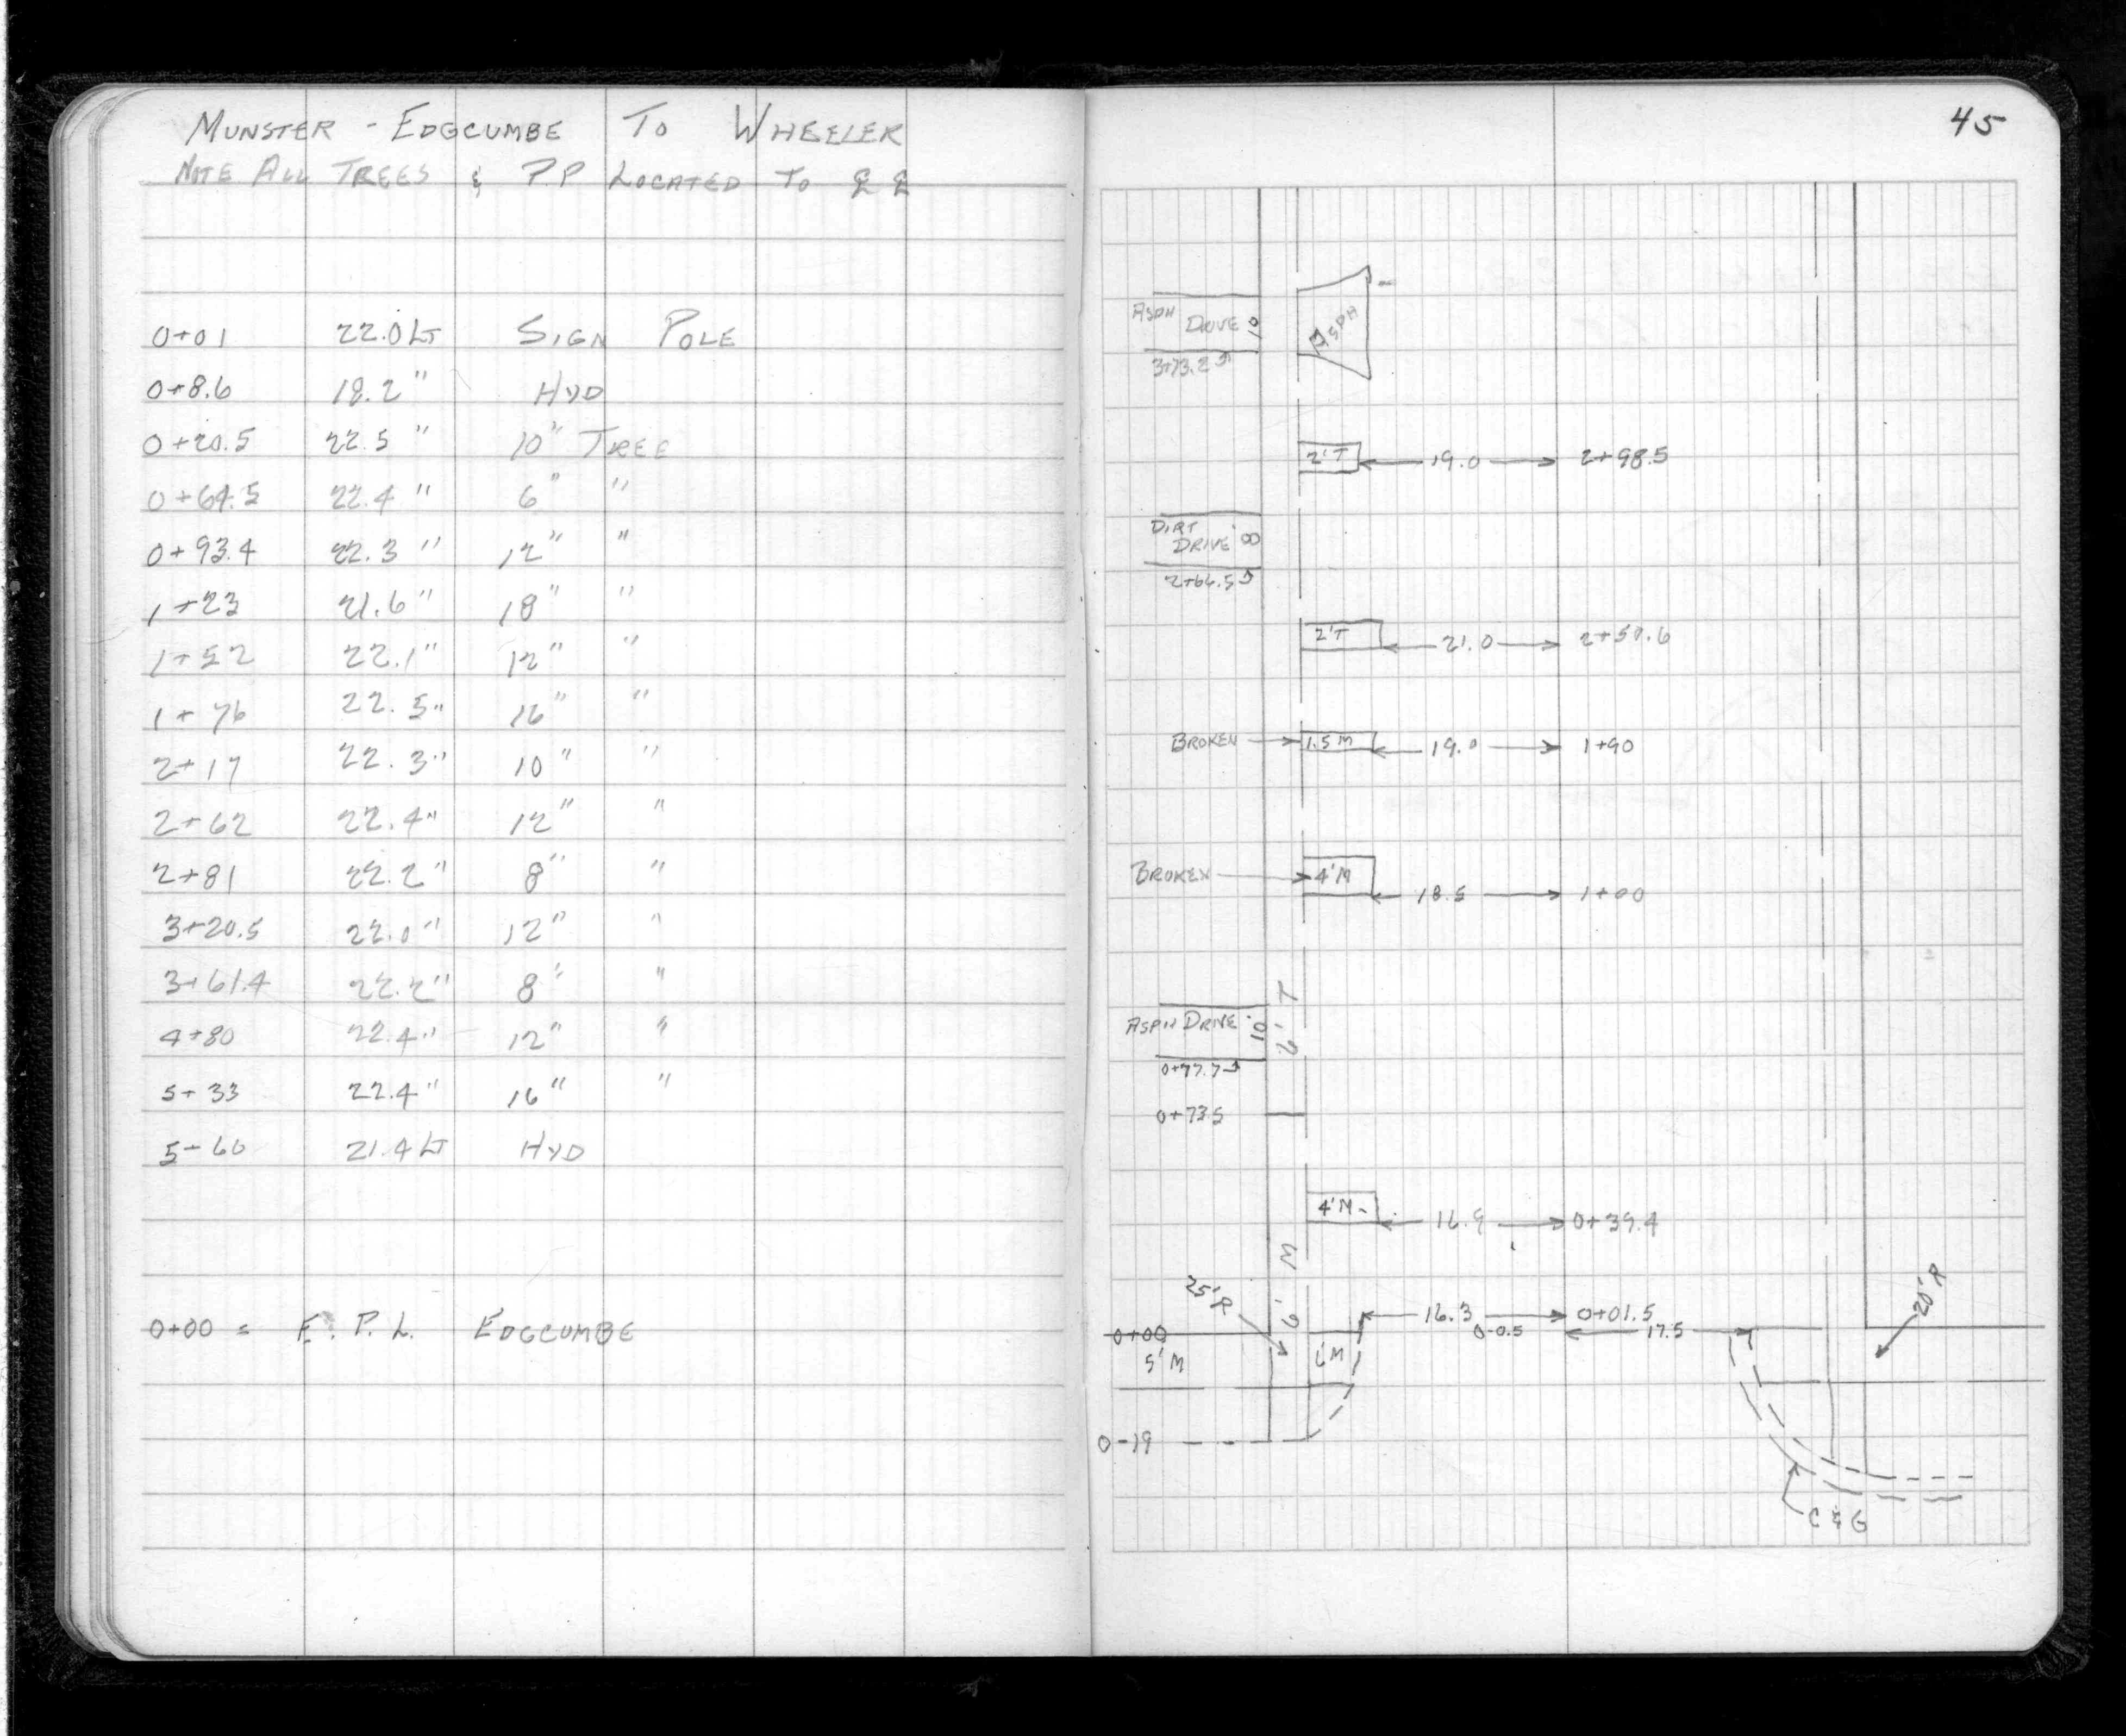 MUNSTER - EDGCUMBE TO WHEELER
NOTE ALL TREES & P.P LOCATED TO ℄ ℄
0+01 22.0 LT SIGN POLE
0+8.6 18.2 " HYD
0+20.5 22.5 " 10" TREE
0+64.5 22.4 " 6" "
0+93.4 22.3 " 12" "
1+23 21.6 " 18" "
1+52 22.1 " 12" "
1+76 22.5 " 16" "
2+17 22.3 " 10" "
2+62 22.4 " 12" "
2+81 22.2 " 8" "
3+20.5 22.0 " 12" "
3+61.4 22.2 " 8" "
4+80 22.4 " 12" "
5+33 22.4 " 16" "
5+60 21.4 LT HYD
0+00 = E. P. L. EDGCUMBE
45
ASPH DRIVE 10
ASPH
3+73.2
2'T 19.0 2+98.5
DIRT
DRIVE 8
2+66.5
2'T 21.0
BROKEN 1.5 M 19.0 1+90
BROKEN 4'M 18.5 1+00
6'T
ASPH DRIVE 10
0+77.7
0+73.5
4'M 16.9 0+39.4
6' M
25'R
16.3 0+01.5
20'R
0+00 0-0.5 17.5
5'M
0-19
C & G